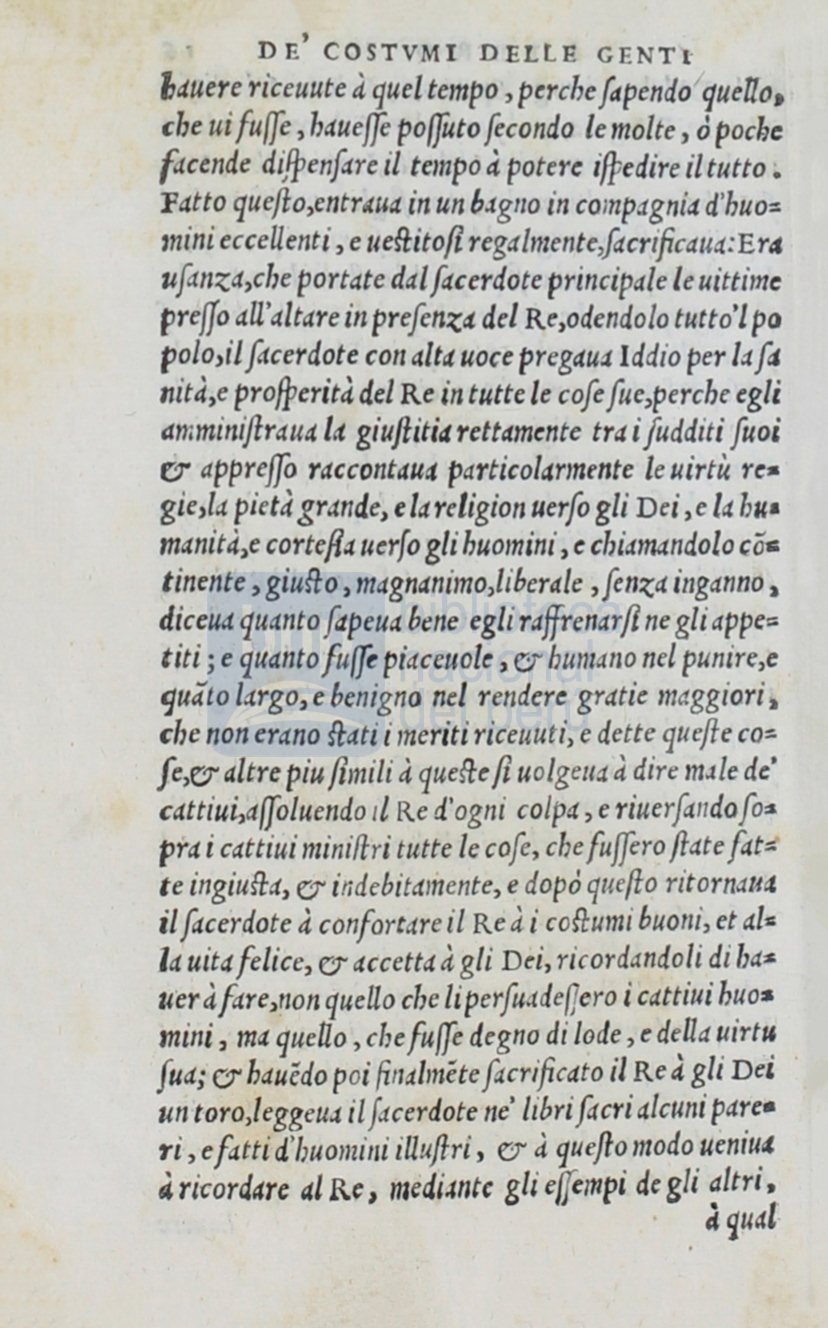 DE' COSTVMI DELLE GENTI
hauere riceuute à quel tempo, perche ſapendo quello,
che ui fuſſe, haueſſe poſſuto ſecondo le molte, ò poche
facende diſpenſare il tempo à potere iſpedire il tutto.
Fatto queſto,entraua in un bagno in compagnia d'huo=
mini eccellenti, e ueſtitoſi regalmente,ſacrificaua:Era
uſanza,che portate dal ſacerdote principale le uittime
preſſo all'altare in preſenza del Re,odendolo tutto'l po
polo,il ſacerdote con alta uoce pregaua Iddio per la ſa
nità,e proſperità del Re in tutte le coſe ſue,perche egli
amminiſtraua la giuſtitia rettamente tra i ſudditi ſuoi
& appreſſo raccontaua particolarmente le uirtù re=
gie,la pietà grande, e la religion uerſo gli Dei, e la hu=
manità,e corteſia uerſo gli huomini, e chiamandolo cõ=
tinente, giuſto, magnanimo,liberale, ſenza inganno,
diceua quanto ſapeua bene egli raffrenarſi ne gli appe=
titi; e quanto fuſſe piaceuole, & humano nel punire,e
quãto largo, e benigno nel rendere gratie maggiori,
che non erano ſtati i meriti riceuuti, e dette queſte co=
ſe,& altre piu ſimili à queſte ſi uolgeua à dire male de'
cattiui,aſſoluendo il Re d'ogni colpa, e riuerſando ſo=
pra i cattiui miniſtri tutte le coſe, che fuſſero ſtate fat=
te ingiuſta, & indebitamente, e dopò queſto ritornaua
il ſacerdote à confortare il Re à i coſtumi buoni, et al=
la uita felice, & accetta à gli Dei, ricordandoli di ha=
uer à fare,non quello che li perſuadeſſero i cattiui huo=
mini, ma quello, che fuſſe degno di lode, e della uirtu
ſua; & hauẽdo poi finalmẽte ſacrificato il Re à gli Dei
un toro,leggeua il ſacerdote ne' libri ſacri alcuni pare=
ri, e fatti d'huomini illuſtri, & à queſto modo ueniua
à ricordare al Re, mediante gli eſſempi de gli altri,
à qual
biblioteca
nacional
del perú